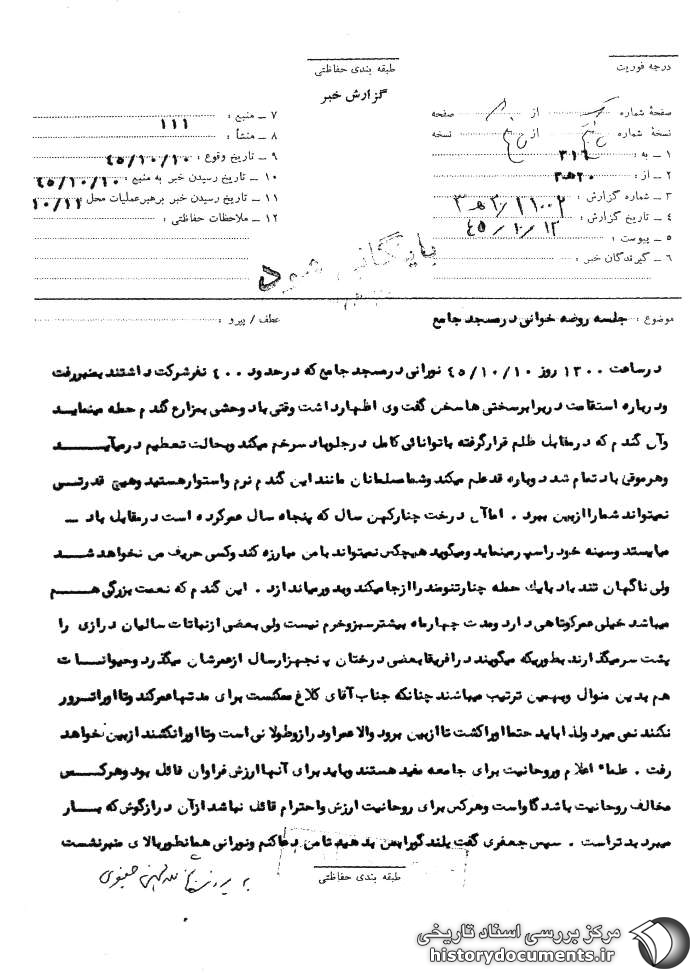 درجه فوریت
طبقه بندی حفاظتی
گزارش خبر
صفحهٔ شماره از صفحه
نسخهٔ شماره از نسخه
۱ ــ به : ۳۱۶
۲ ــ از : ۲۰ه۳
۳ ــ شماره گزارش :
۴ ــ تاریخ گزارش : ۴۵/۱۰/۱۳
۵ ــ پیوست :
۶ ــ گیرندگان خبر :
۷ ــ منبع : ۱۱۱
۸ ــ منشأ :
۹ ــ تاریخ وقوع : ۴۵/۱۰/۱۰
۱۰ ــ تاریخ رسیدن خبر به منبع : ۴۵/۱۰/۱۰
۱۱ ــ تاریخ رسیدن خبر برهبرعملیات محل : ۱۰/۱۱
۱۲ ــ ملاحظات حفاظتی :
بایگانی شود
موضوع : جلسه روضه خوانی درمسجد جامع
عطف / پیرو :
درساعت ۱۳۰۰ روز ۴۵/۱۰/۱۰ نورانی درمسجد جامع که درحدود ۴۰۰ نفرشرکت داشتند بمنبررفت
ودرباره استقامت دربرابرسختی ها سخن گفت وی اظهارداشت وقتی باد وحشی بمزارع گندم حمله مینماید
وآن گندم که درمقابل ظلم قرارگرفته باتوانائی کامل درجلوباد سرخم میکند وبحالت تعظیم درمیآیــد
وهرموقع باد تمام شد دوباره قدعلم میکند وشمامسلمانان مانند این گندم نرم واستوارهستید وهیچ قدرتــی
نمیتواند شماراازبین ببرد . اماآن درخت چنارکهن سال که پنجاه سال عمرکرده است درمقابل باد ــ
میایستد وسینه خود راسپرمینماید ومیگوید هیچکس نمیتواند بامن مبارزه کند وکسی حریف من نخواهد شــد
ولی ناگهان تند باد بایك حمله چنارتنومند راازجامیکند وبدورمیاندازد . این گندم که نعمت بزرگی هــم
میباشد خیلی عمرکوتاهی دارد ومدت چهارماه بیشترسبزوخرم نیست ولی بعضی ازنباتات سالیان درازی را
پشت سرمیگذارند بطوریکه میگویند درافریقابعضی درختان پنجهزارسال ازعمرشان میگذرد وحیوانــات
هم بدین منوال وبهمین ترتیب میباشند چنانکه جناب آقای کلاغ ممکنست برای مدتهاعمرکند وتااوراترور
نکنند نمی میرد ولذا باید حتمااوراکشت تاازبین برود والا عمراودرازوطولانی است وتااورانکشند ازبین نخواهد
رفت . علماء اعلام وروحانیت برای جامعه مفید هستند وباید برای آنهاارزش فراوان قائل بود وهرکــس
مخالف روحانیت باشد گاواست وهرکس برای روحانیت ارزش واحترام قائل نباشد ازآن درازگوش که بــار
میبرد بدتراست . سپس جعفری گفت بلندگورابمن بدهید تامن دعاکنم ونورانی همانطوربالای منبرنشست
طبقه بندی حفاظتی
مرکز بررسی اسناد تاریخی
historydocuments.ir